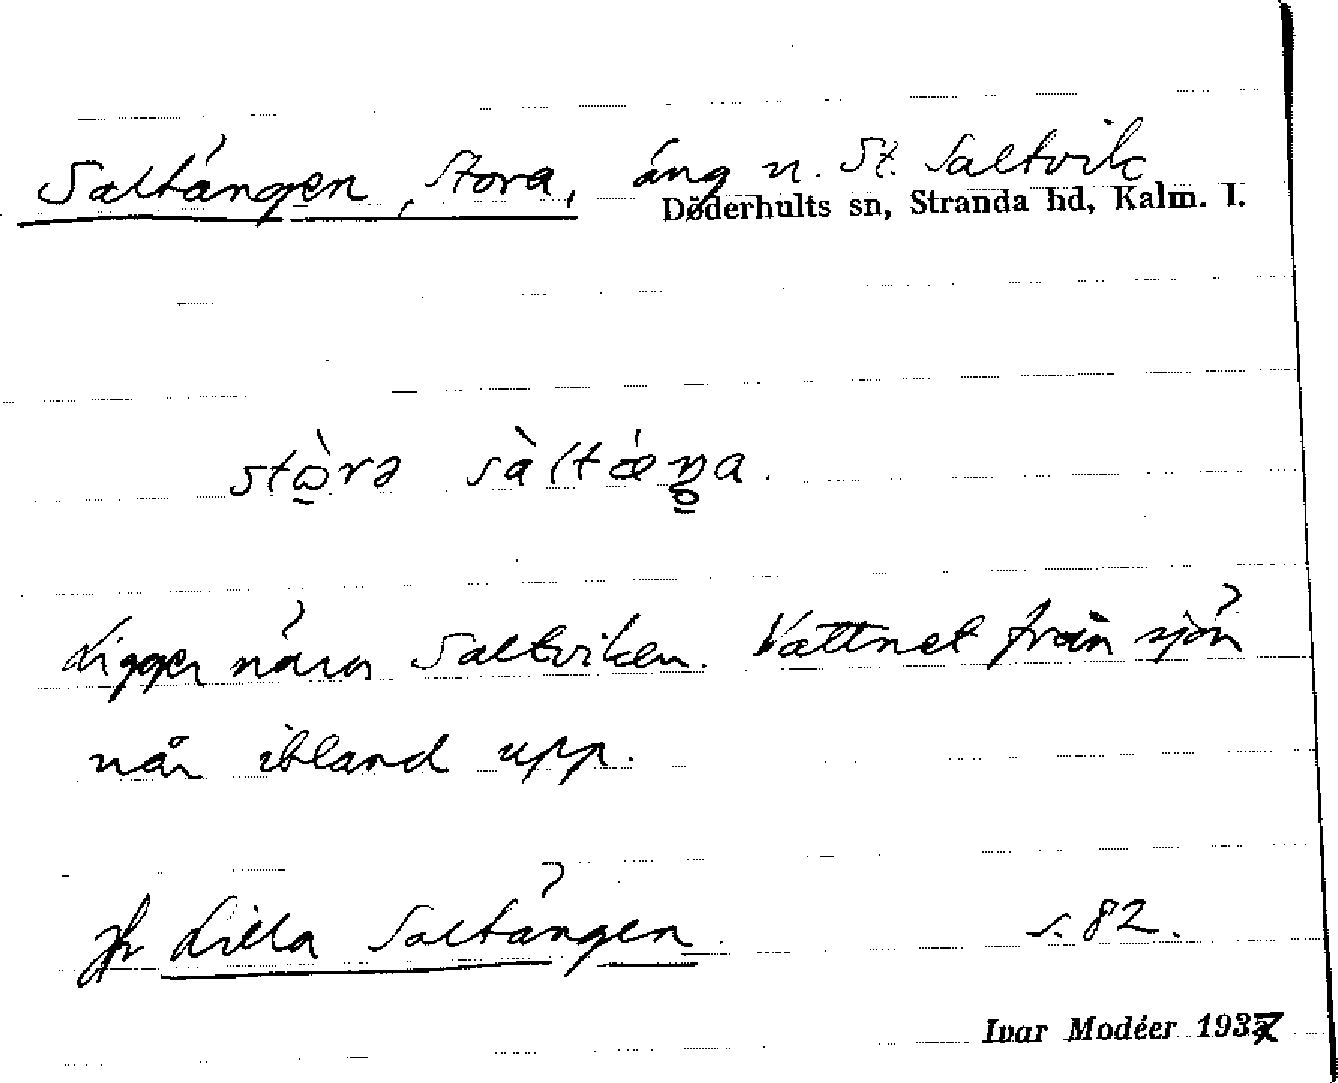 Saltängen, Stora, äng n. St. Saltvik
Döderhults sn, Stranda hd, Kalm. l.
stὼ̠rə sàltǽŋ̥̠a.
Ligger nära Saltviken. Vattnet från sjön
når ibland upp.
Jfr Lilla Saltängen s. 82.
Ivar Modéer 1937